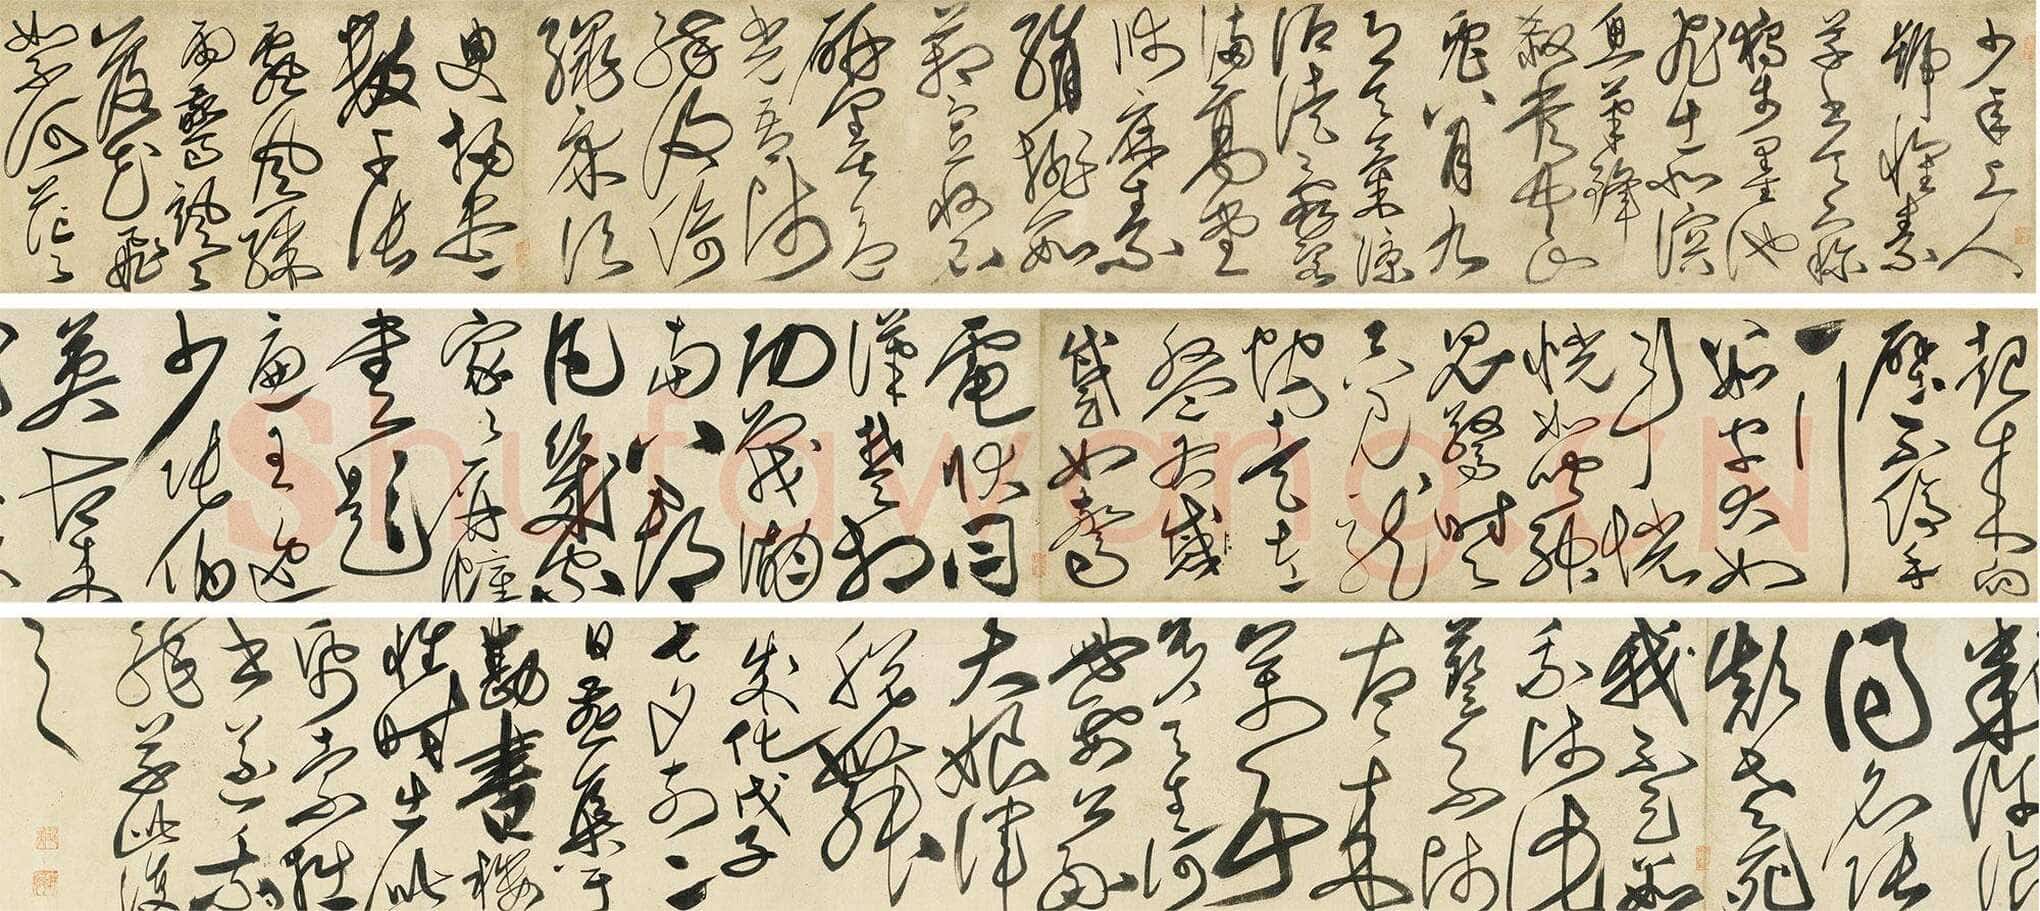 少年上人
號懷素
草書天下称
獨步墨池
飛出北溟
魚筆鋒
殺盡中山
兔八月九
月天氣凉
酒徒詞客
滿高堂
牋麻素
絹排數
廂宣州石
硯墨色
光吾師
醉後倚
繩床須
臾掃盡
數千張
飄風驟
雨驚颯颯
落花飛
雪何茫茫
起來向
壁不停手
一行
數字大如
斗怳
怳如聞神
鬼驚時時
只見龍
蛇走左
盤右蹙
如驚
電狀同
漢楚相
攻戰湖
南七郡
凡幾家
家家屏幛
書題
遍王逸
少張伯
英古來
幾許浪
得名張
顛老死
不足數
我師此
義不師
古古來
萬事
貴天生何
必要公孫
大娘渾
脫舞
成化戊子
七夕前二
日燕集于
勘書樓